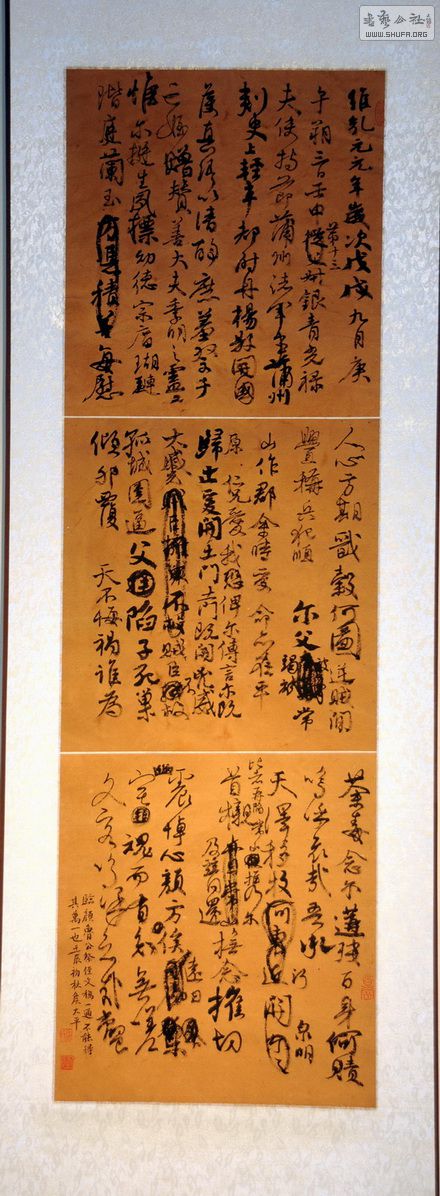 書藝公社
WWW.SHUFA.ORG
維乾元元年歲次戊戌九月庚
午朔三日壬申第十三叔銀青光祿
夫使持節蒲州諸軍事蒲州
刺史上輕車都尉丹楊縣開國
侯真卿以清酌庶羞祭于
亡姪贈贊善大夫季明之靈
惟爾挺生夙標幼德宗廟瑚璉
階庭蘭玉每慰
人心方期戩穀何圖逆賊閒
釁稱兵犯順爾父常
山作郡余時受命亦在平
原仁兄愛我俾爾傳言爾既
歸止爰開土門土門既開凶威
大蹙賊臣不救
孤城圍逼父陷子死巢
傾卵覆天不悔禍誰為
荼毒念爾遘殘百身何贖
嗚呼哀哉吾承
天澤移牧河關泉明
比者再陷常山攜爾
首櫬及茲同還撫念摧切
震悼心顏方俟遠日
卜爾幽宅魂而有知無嗟
久客嗚呼哀哉尚饗
臨顏魯公祭侄文稿一通不能得
其萬一也